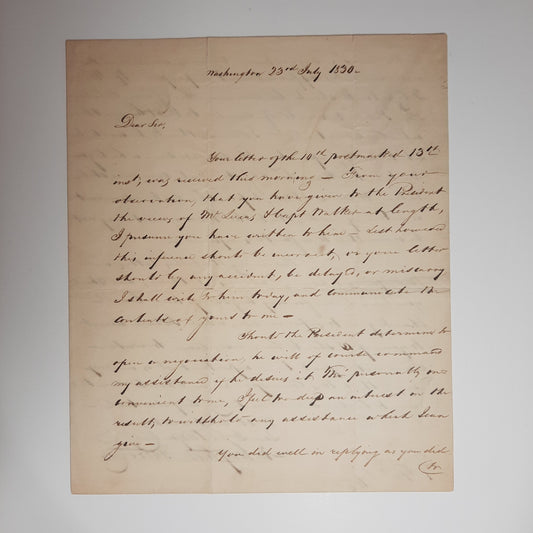 Washington 23rd July 1830 —
Dear Sir,
Your letter of the 10th postmarked 13th
inst, was received this morning — From your
observation, that you have given to the President
the views of Mr Lucas & Capt Walker at length,
I presume you have written to him — Lest however
this inference should be incorrect, or your letter
should by any accident, be delayed, or miscarry
I shall write to him today, and communicate the
contents of yours to me —
Should the President determine to
open a negociation, he will of course command
my assistance if he desires it. Tho' personally in-
convenient to me, I feel too deep an interest in the
result, to withhold any assistance which I can
give —
You did well in replying as you did
to